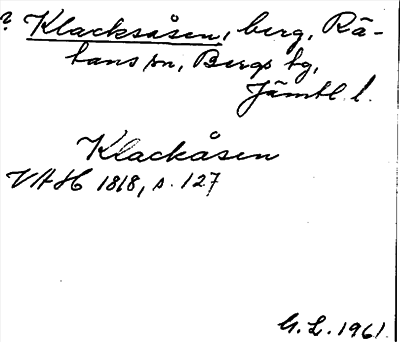 ? Klacksåsen, berg, Rä-
tans sn, Bergs tg,
Jämtl. l.
Klackåsen
VAH 1818, s. 127
G.L. 1961.